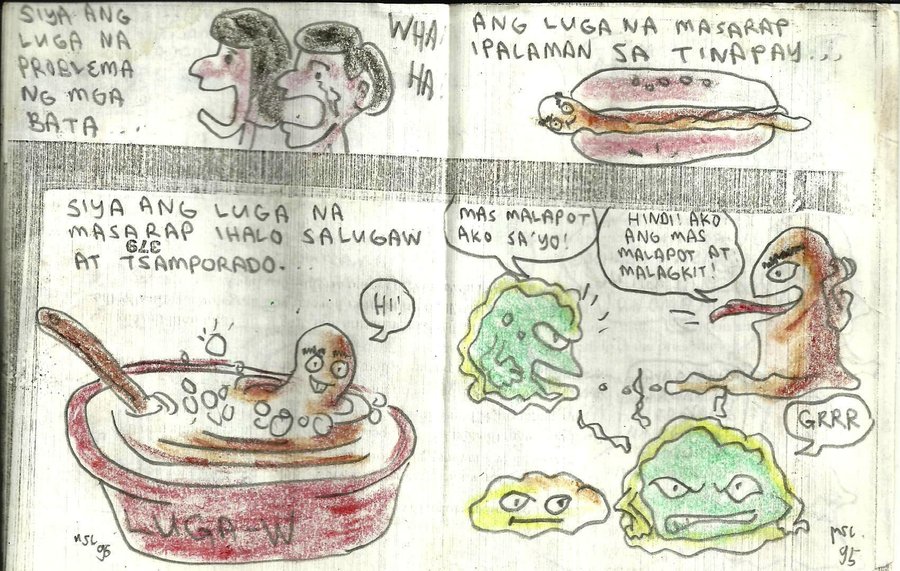 SIYA ANG
LUGA NA
PROBLEMA
NG MGA
BATA....
WHA
HA
ANG LUGA NA MASARAP
IPALAMAN SA TINAPAY...
SIYA ANG LUGA NA
MASARAP IHALO SA LUGAW
AT TSAMPORADO.
HI!
LUGA-W
MAS MALAPOT
AKO SA'YO!
HINDI! AKO
ANG MAS
MALAPOT AT
MALAGKIT!
GRRR
95
95